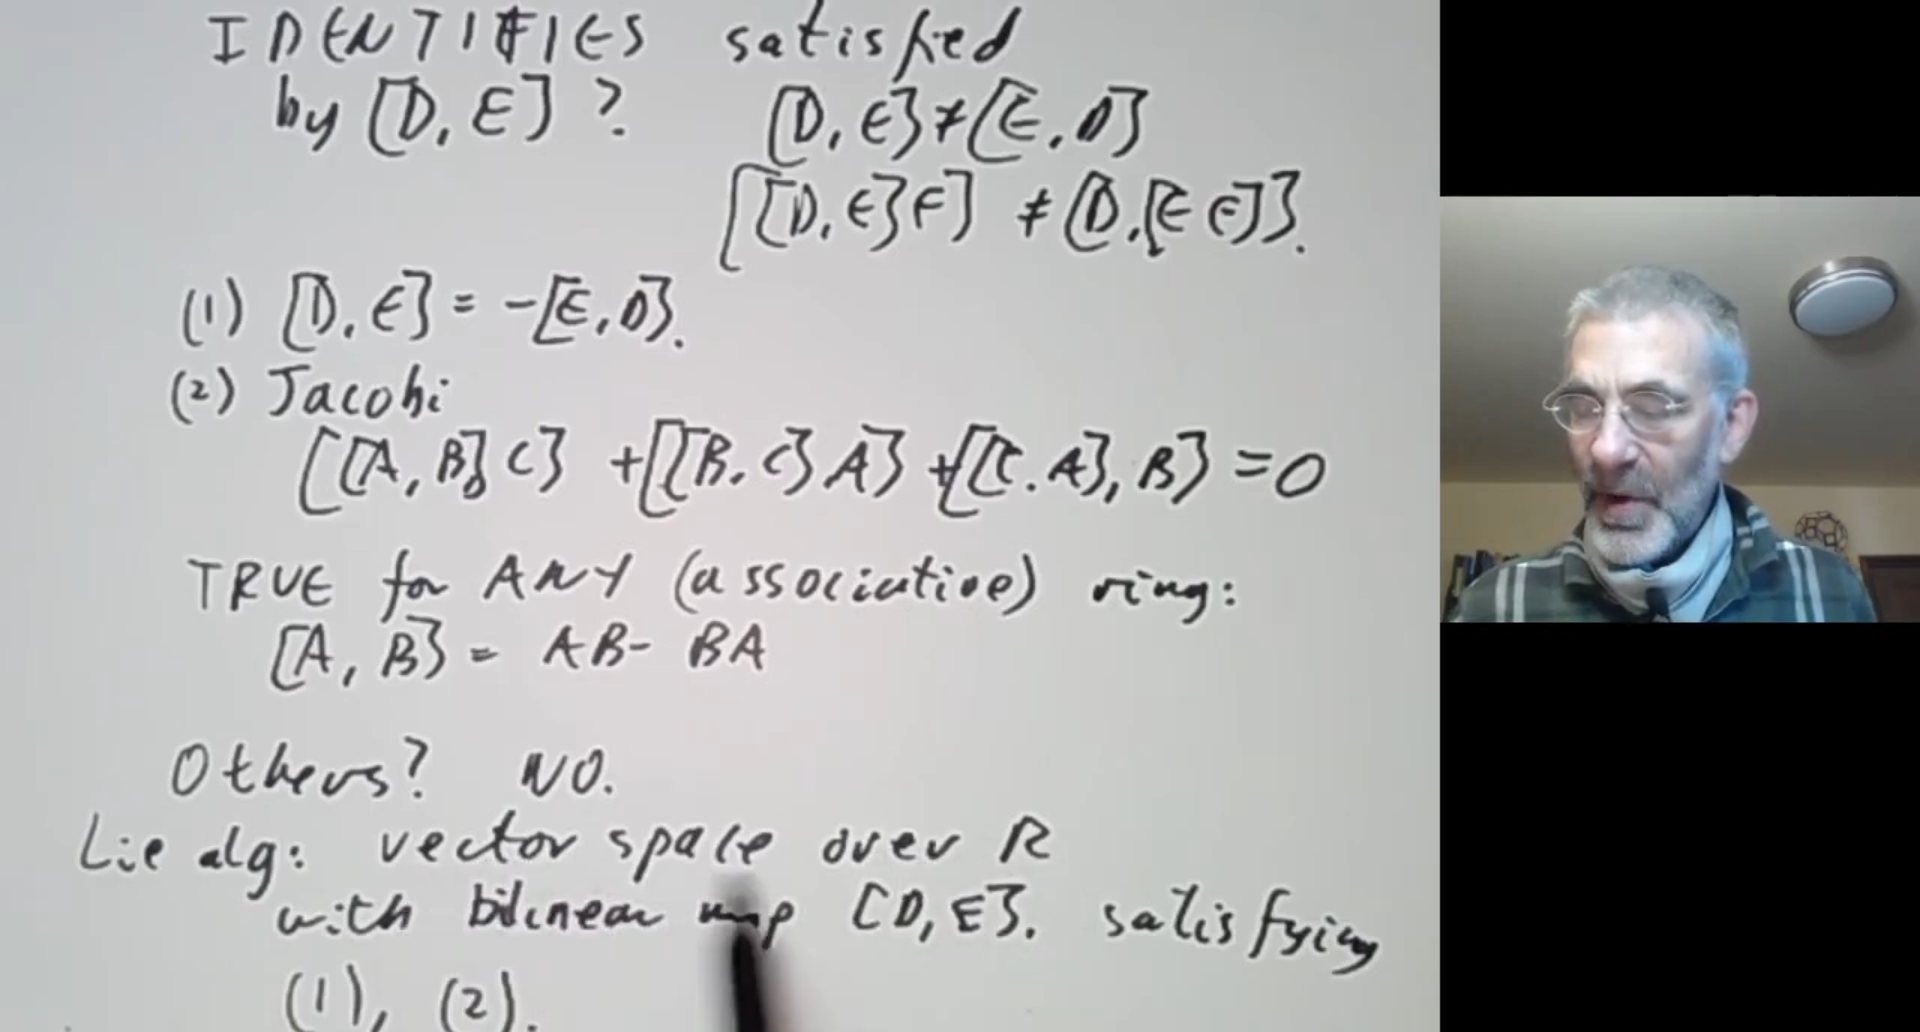 IDENTITIES satisfied
by [D, E]? [D, E] ≠ [E, D]
[[D, E] F] ≠ [D, [E E]].
(1) [D, E] = -[E, D].
(2) Jacobi
[[A, B] C] + [[B, C] A] + [[C, A], B] = 0
TRUE for ANY (associative) ring:
[A, B] = AB - BA
Others? NO.
Lie alg: vector space over R
with bilinear map [D, E]. satisfying
(1), (2).